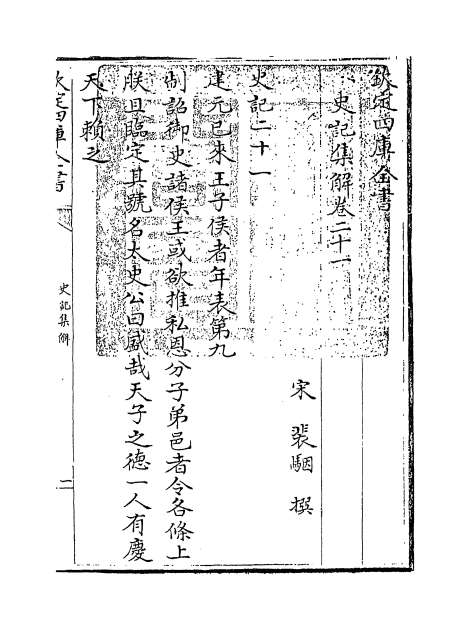 欽定四庫全書
史記集解卷二十一
宋 裴駰 撰
史記二十一
建元已來王子侯者年表第九
制詔御史諸侯王或欲推私恩分子弟邑者令各條上
朕且臨定其號名太史公曰盛哉天子之德一人有慶
天下賴之
欽定四庫全書
史記集解